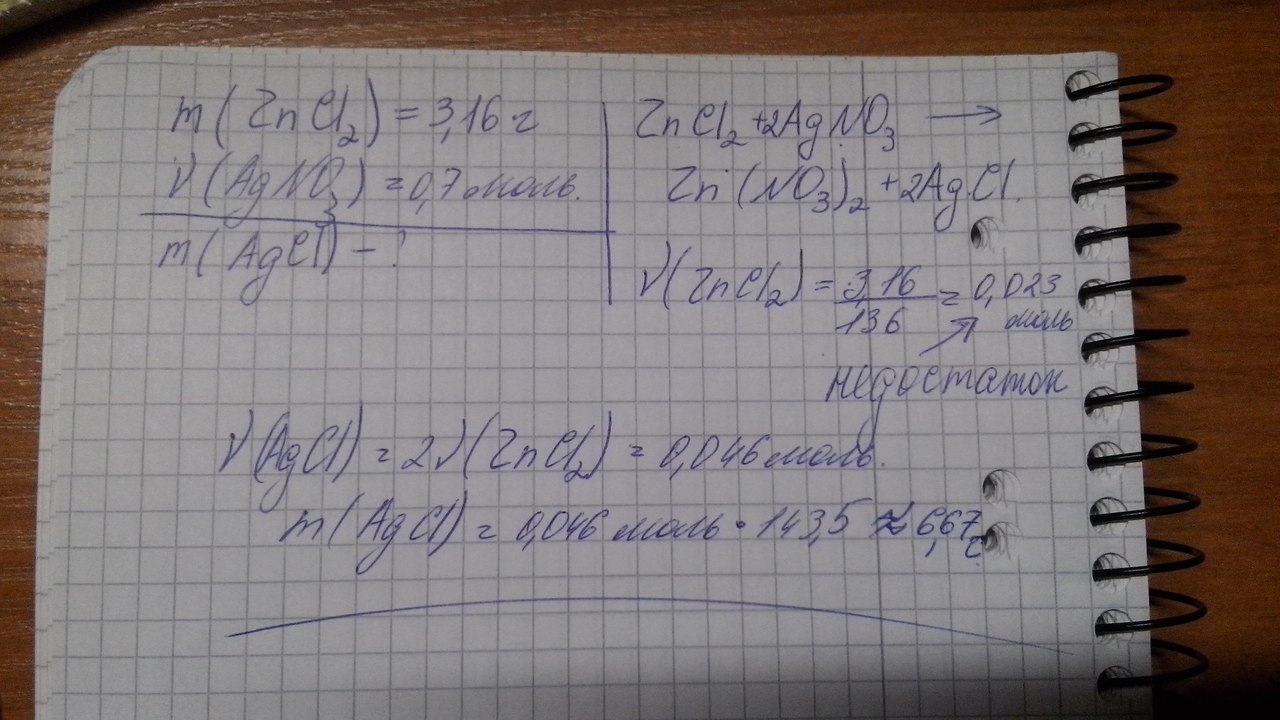 m(ZnCl₂) = 3,16 г
ν(AgNO₃) = 0,7 моль.
m(AgCl) - ?
ZnCl₂ + 2AgNO₃ →
Zn(NO₃)₂ + 2AgCl.
ν(ZnCl₂) = 3,16/136 = 0,023 моль
недостаток
ν(AgCl) = 2ν(ZnCl₂) = 0,046 моль.
m(AgCl) = 0,046 моль · 143,5 ≈ 6,67 г